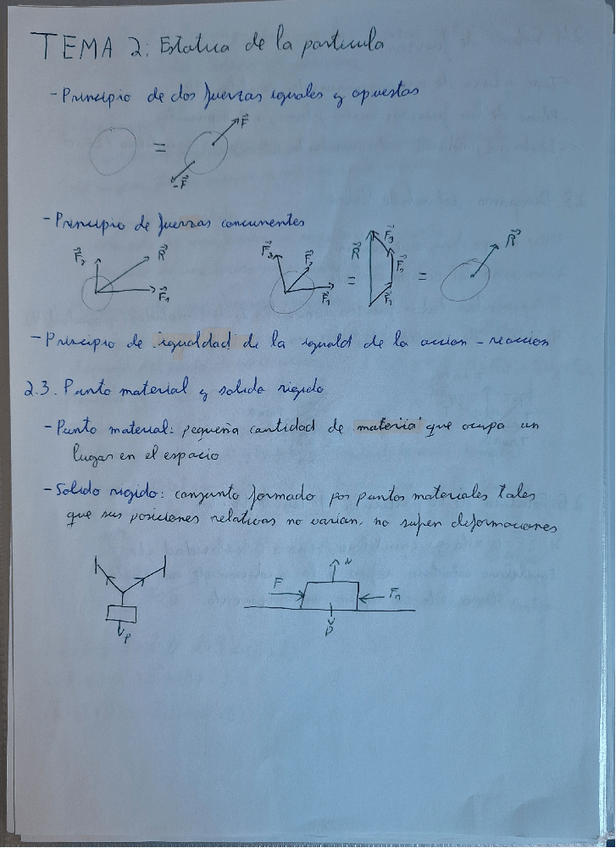 TEMA 2: Estatica de la particula
- Principio de dos fuerzas iguales y opuestas
= F
-F
- Principio de fuerzas concurrentes
F₂ R F₁ F₃ F₂ F₁ = R F₃ F₂ F₁ = R
- Principio de igualdad de la iguald de la accion - reaccion
2.3. Punto material y solido rigido
- Punto material: pequeña cantidad de materia que ocupa un
lugar en el espacio
- Solido rigido: conjunto formado por puntos materiales tales
que sus posiciones relativas no varian, no sufren deformaciones
N
F
P P